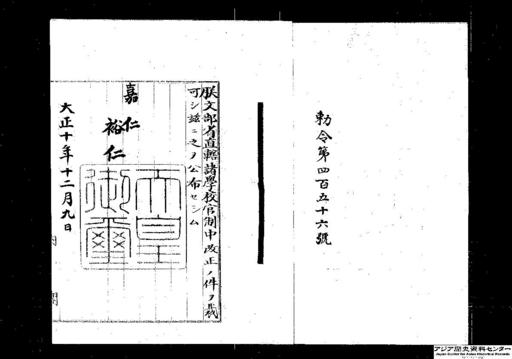 勅令第四百五十六號
朕文部省直轄諸學校官制中改正ノ件ヲ裁
可シ茲ニ之ヲ公布セシム
嘉仁
裕仁
天皇
御璽
大正十年十二月九日
内閣
アジア歴史資料センター
Japan Center for Asian Historical Records